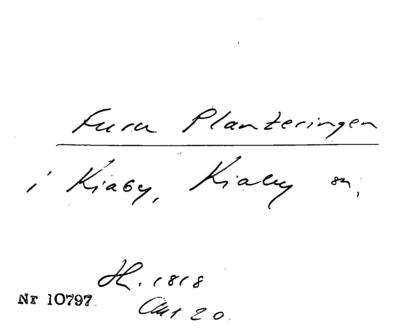 Furu Planteringen
i Kiaby, Kiaby sn,
H. 1818
Nr 10797.
Akt 20.